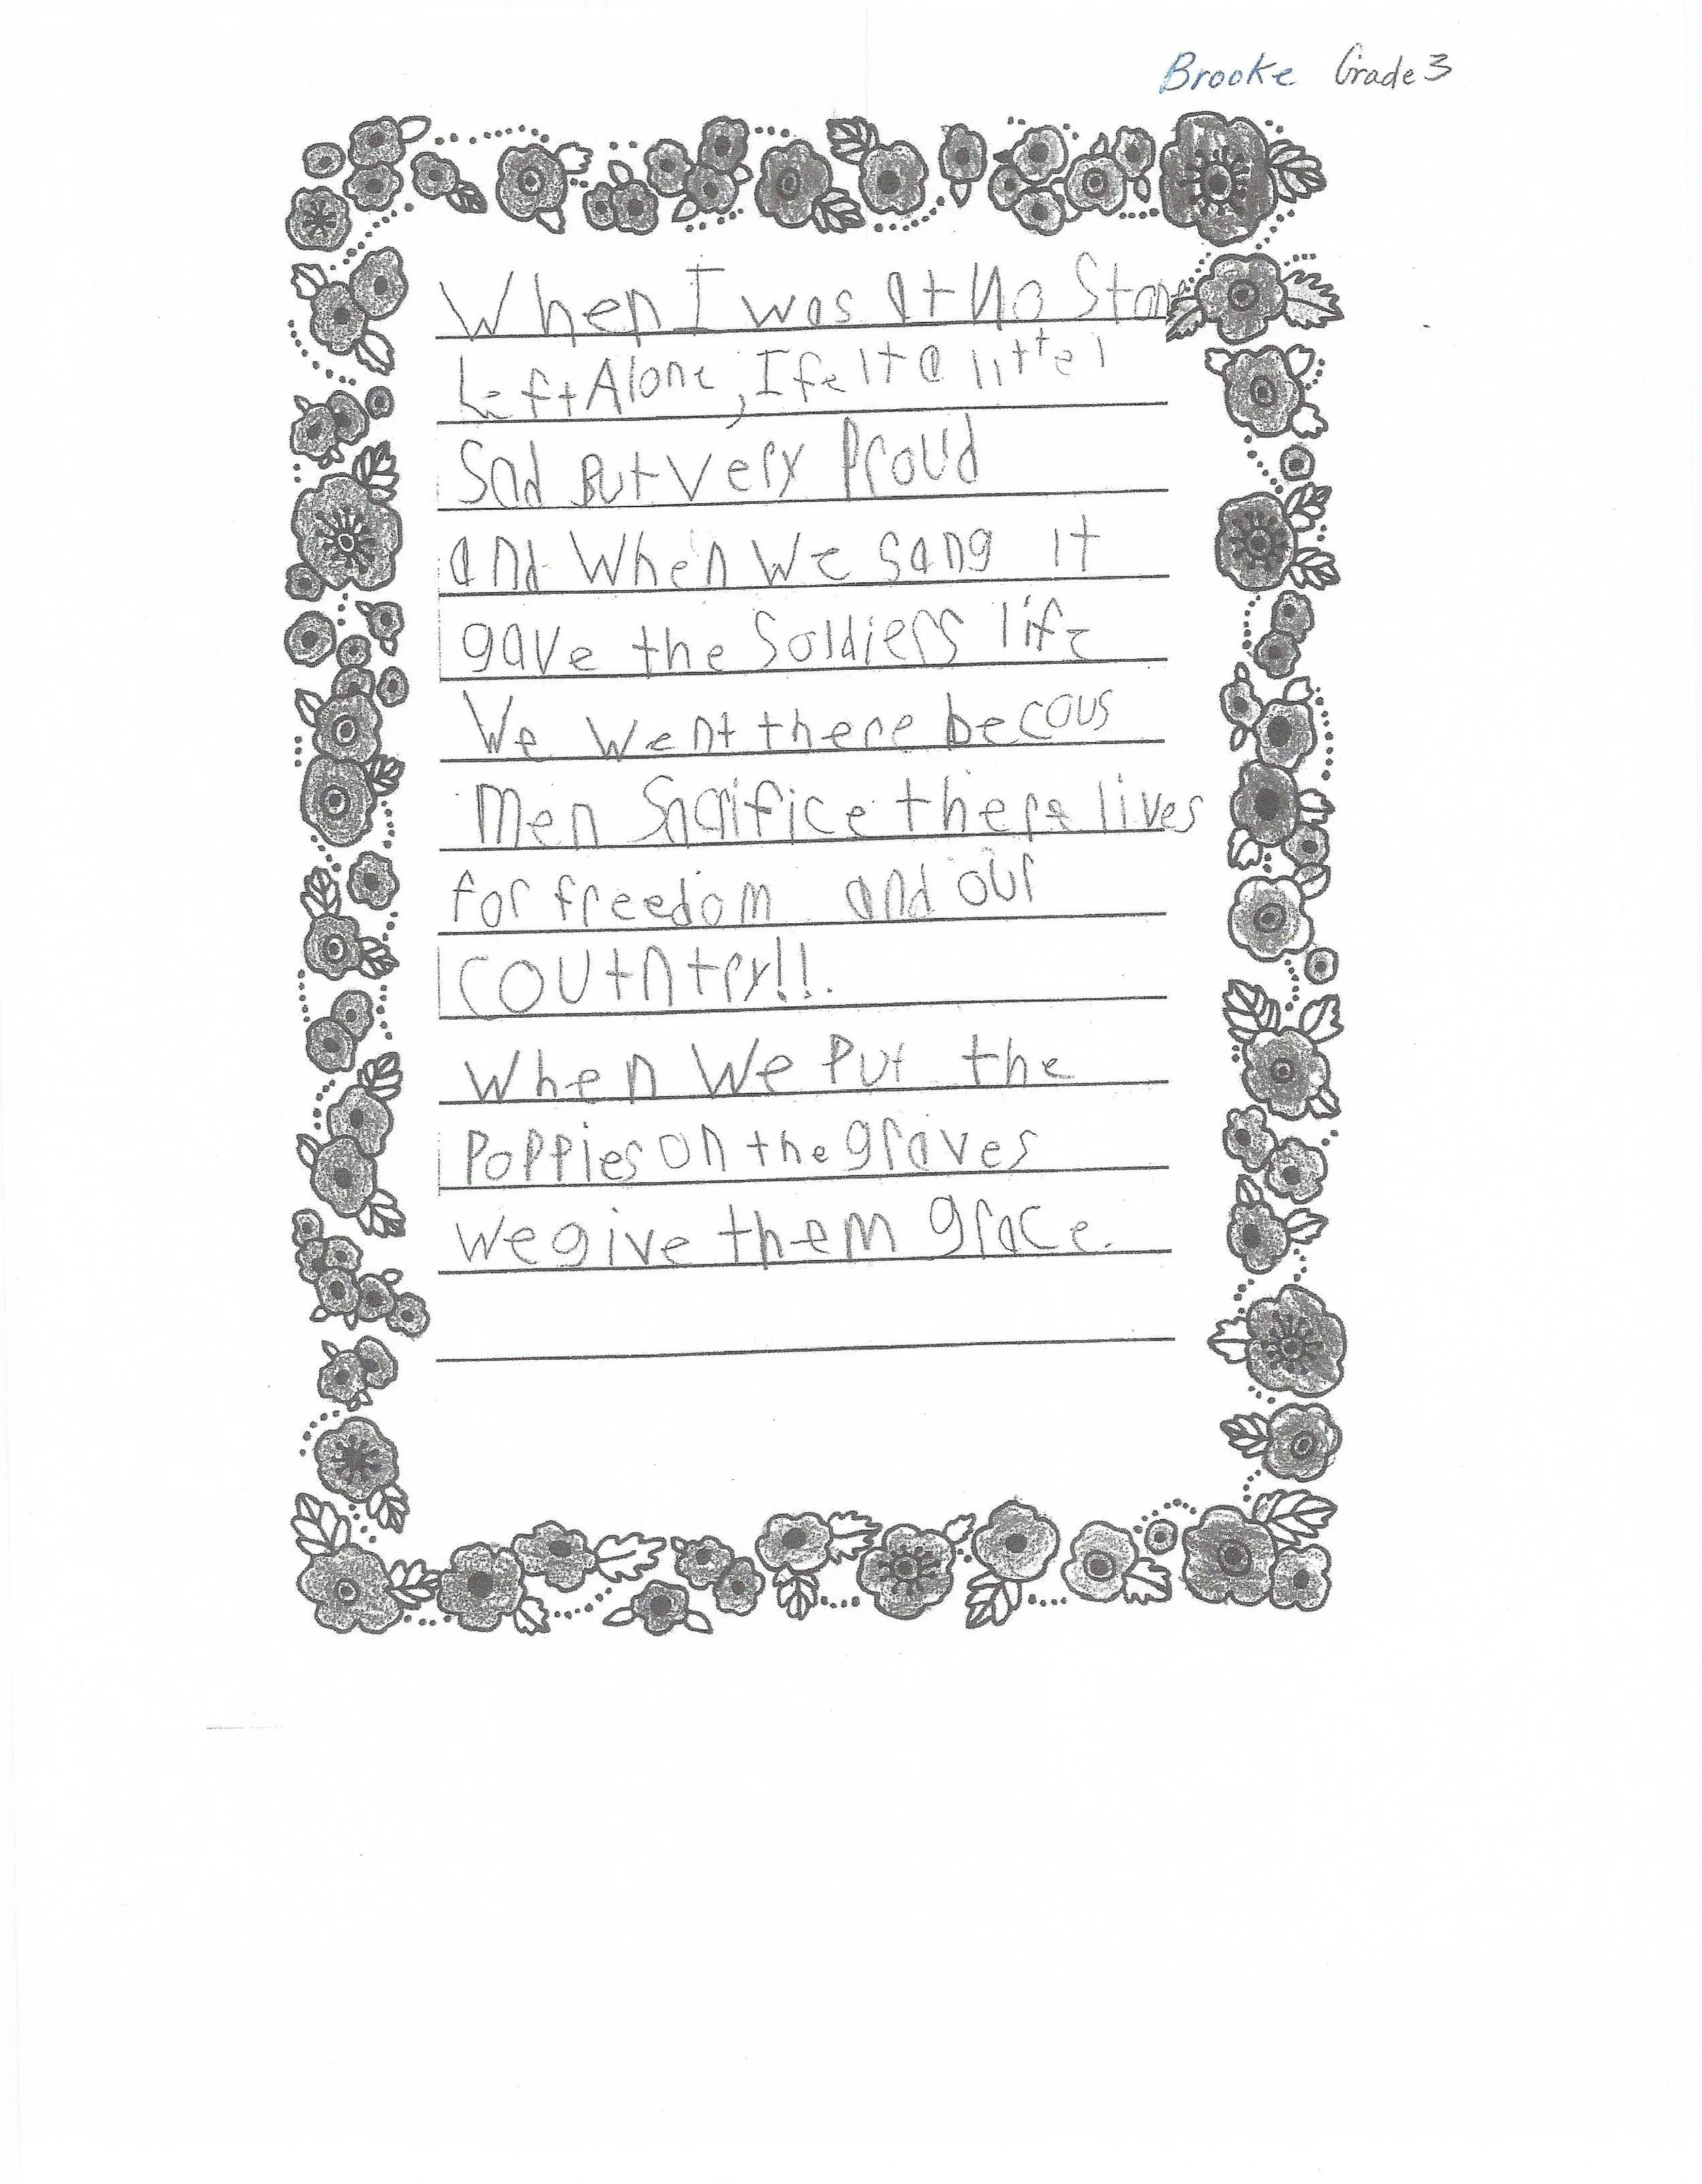 Brooke Grade 3
When I was At No Stone
Left Alone, I felt a littel
Sad But very Proud
and When We sang it
gave the Soldiers life
We went there becaus
men Sacrifice there lives
for freedom and our
coutntry!!.
When We Put the
Poppies on the graves
we give them grace.